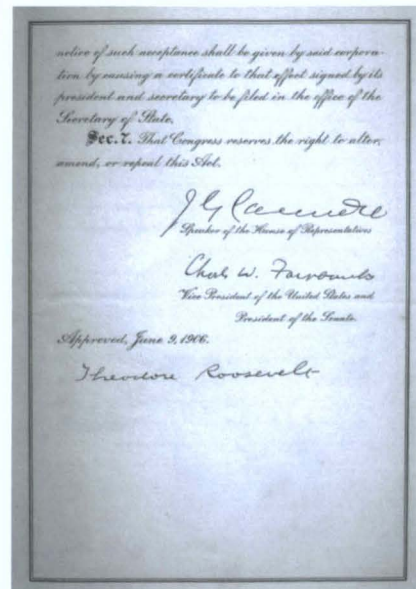 notice of such acceptance shall be given by said corpora-
tion by causing a certificate to that effect signed by its
president and secretary to be filed in the office of the
Secretary of State.
Sec. 7. That Congress reserves the right to alter,
amend, or repeal this Act.
J G Cannon
Speaker of the House of Representatives
Chas W. Fairbanks
Vice President of the United States and
President of the Senate.
Approved, June 9, 1906.
Theodore Roosevelt